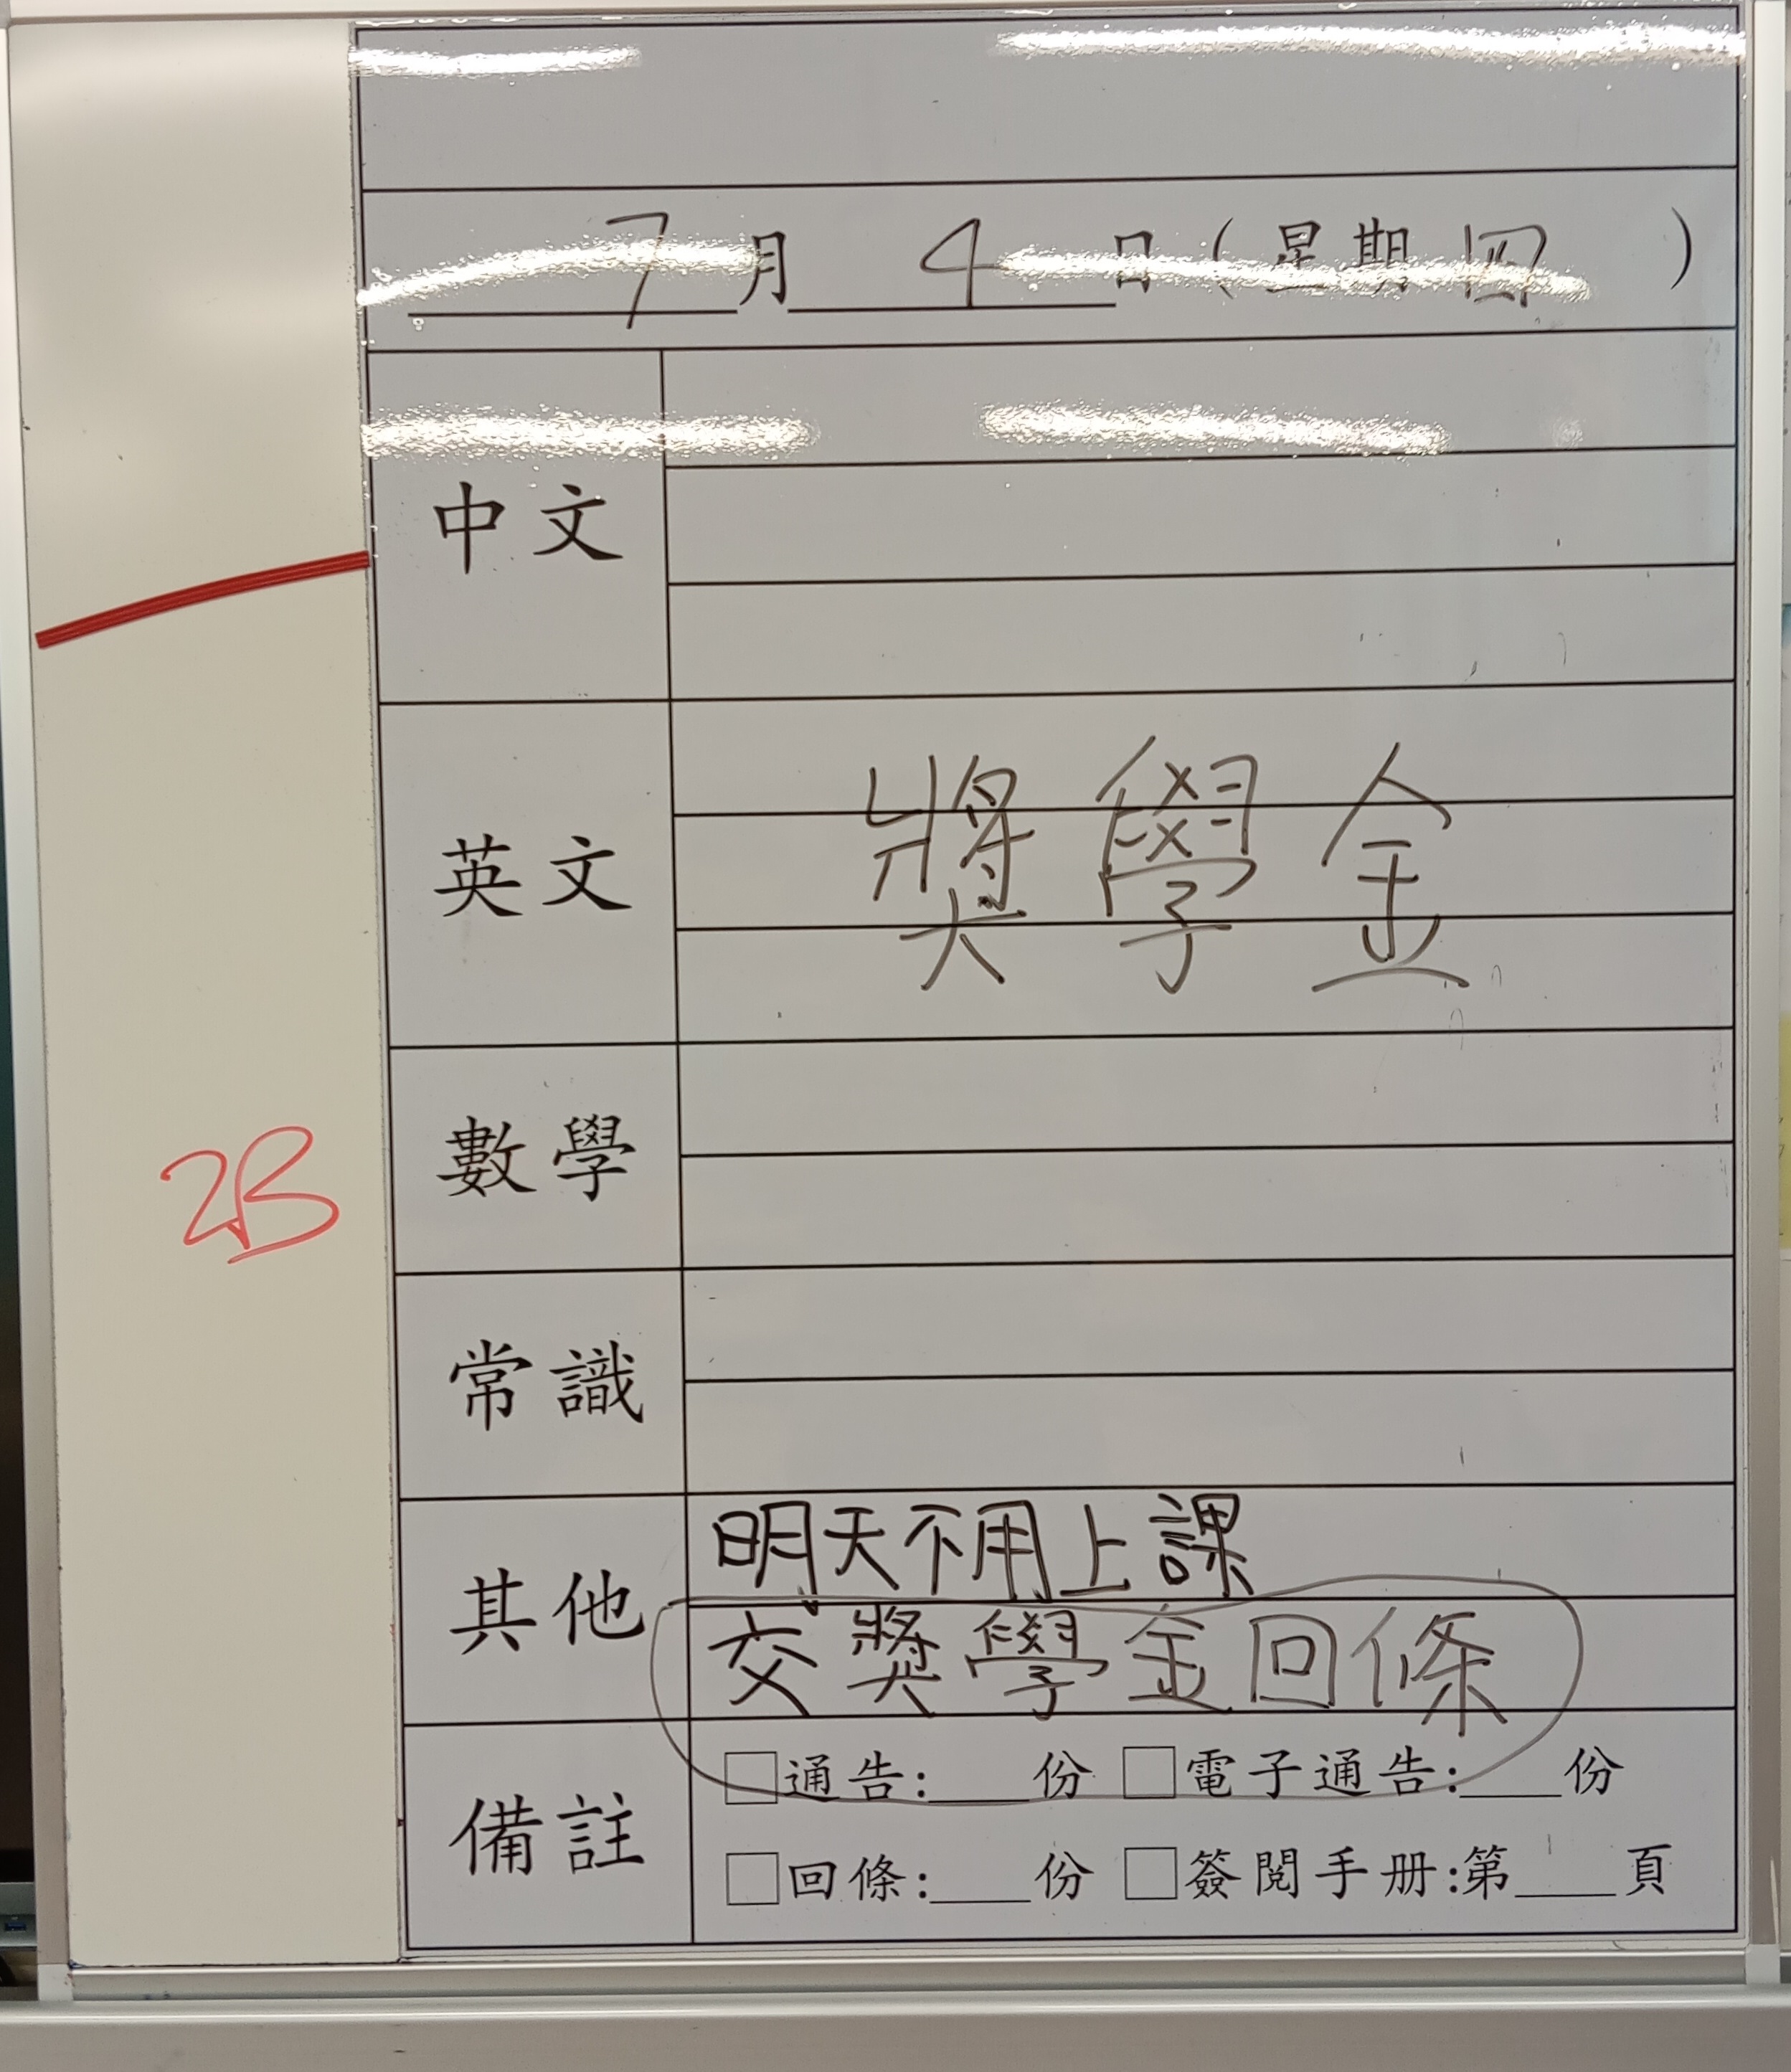 7月4日(星期四)
中文
英文
獎學金
數學
2B
常識
其他
明天不用上課
交獎學金回條
備註
□通告:___份 □電子通告:___份
□回條:___份 □簽閱手册:第___頁